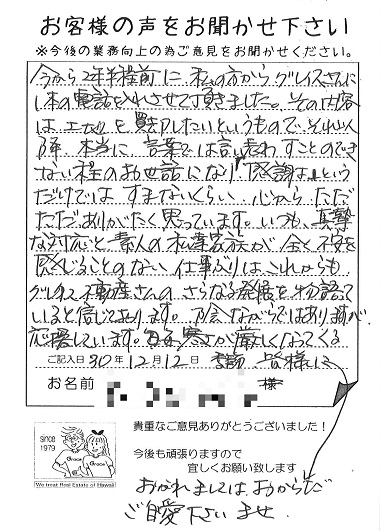 お客様の声をお聞かせ下さい
※今後の業務向上の為ご意見をお聞かせください。
今から2年半程前に、私の方からグレイスさんに
1本の電話を入れさせて頂きました。その内容
は、エカヒを買戻したいというもので、それ以
降、本当に言葉では言い表わすことのでき
ない程のお世話になり「感謝」という
だけではすまないくらい、心からただ
ただありがたく思っています。いつも、真摯
な対応と素人の私達家族が、全く不安を
感じることのない仕事ぶりは、これからも
グレイス不動産さんのさらなる発展を物語って
いると信じております。陰ながらではありますが、
応援しています。寒さが厳しくなってくる
季節、皆様に
ご記入日 30年12月12日
お名前 様
SINCE 1979
Grace
Grace
We treat Real Estate of Hawaii
貴重なご意見ありがとうございました！
今後も頑張りますので
宜しくお願い致します
おかれましては、おからだ
ご自愛下さいませ。